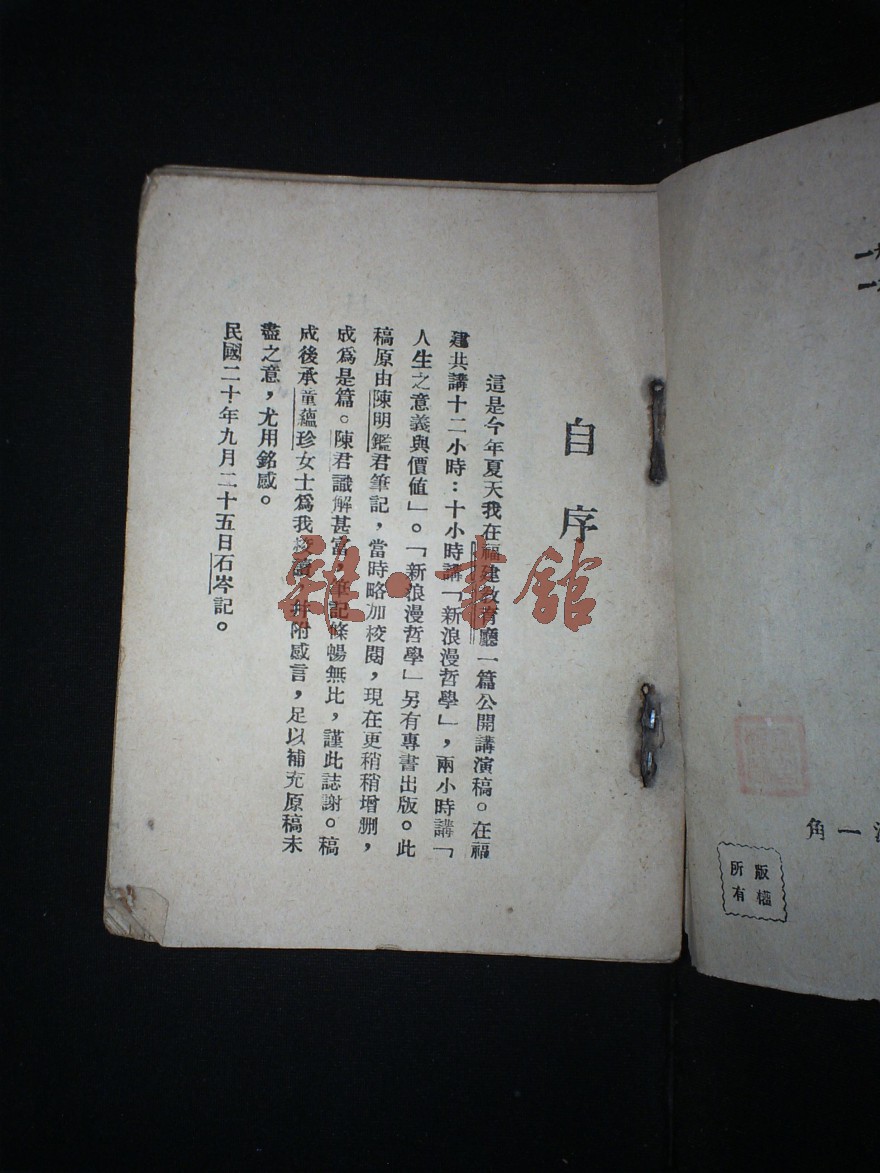 自序
這是今年夏天我在福建教育廳一篇公開講演稿。在福
建共講十二小時：十小時講「新浪漫哲學」，兩小時講「
人生之意義與價值」。「新浪漫哲學」另有專書出版。此
稿原由陳明鑑君筆記，當時略加校閱，現在更稍稍增刪，
成爲是篇。陳君識解甚富，筆記條暢無比，謹此誌謝。稿
成後承童蘊珍女士爲我校讀，并附感言，足以補充原稿未
盡之意，尤用銘感。
民國二十年九月二十五日石岑記。
角一
版權
所有
雜·書館